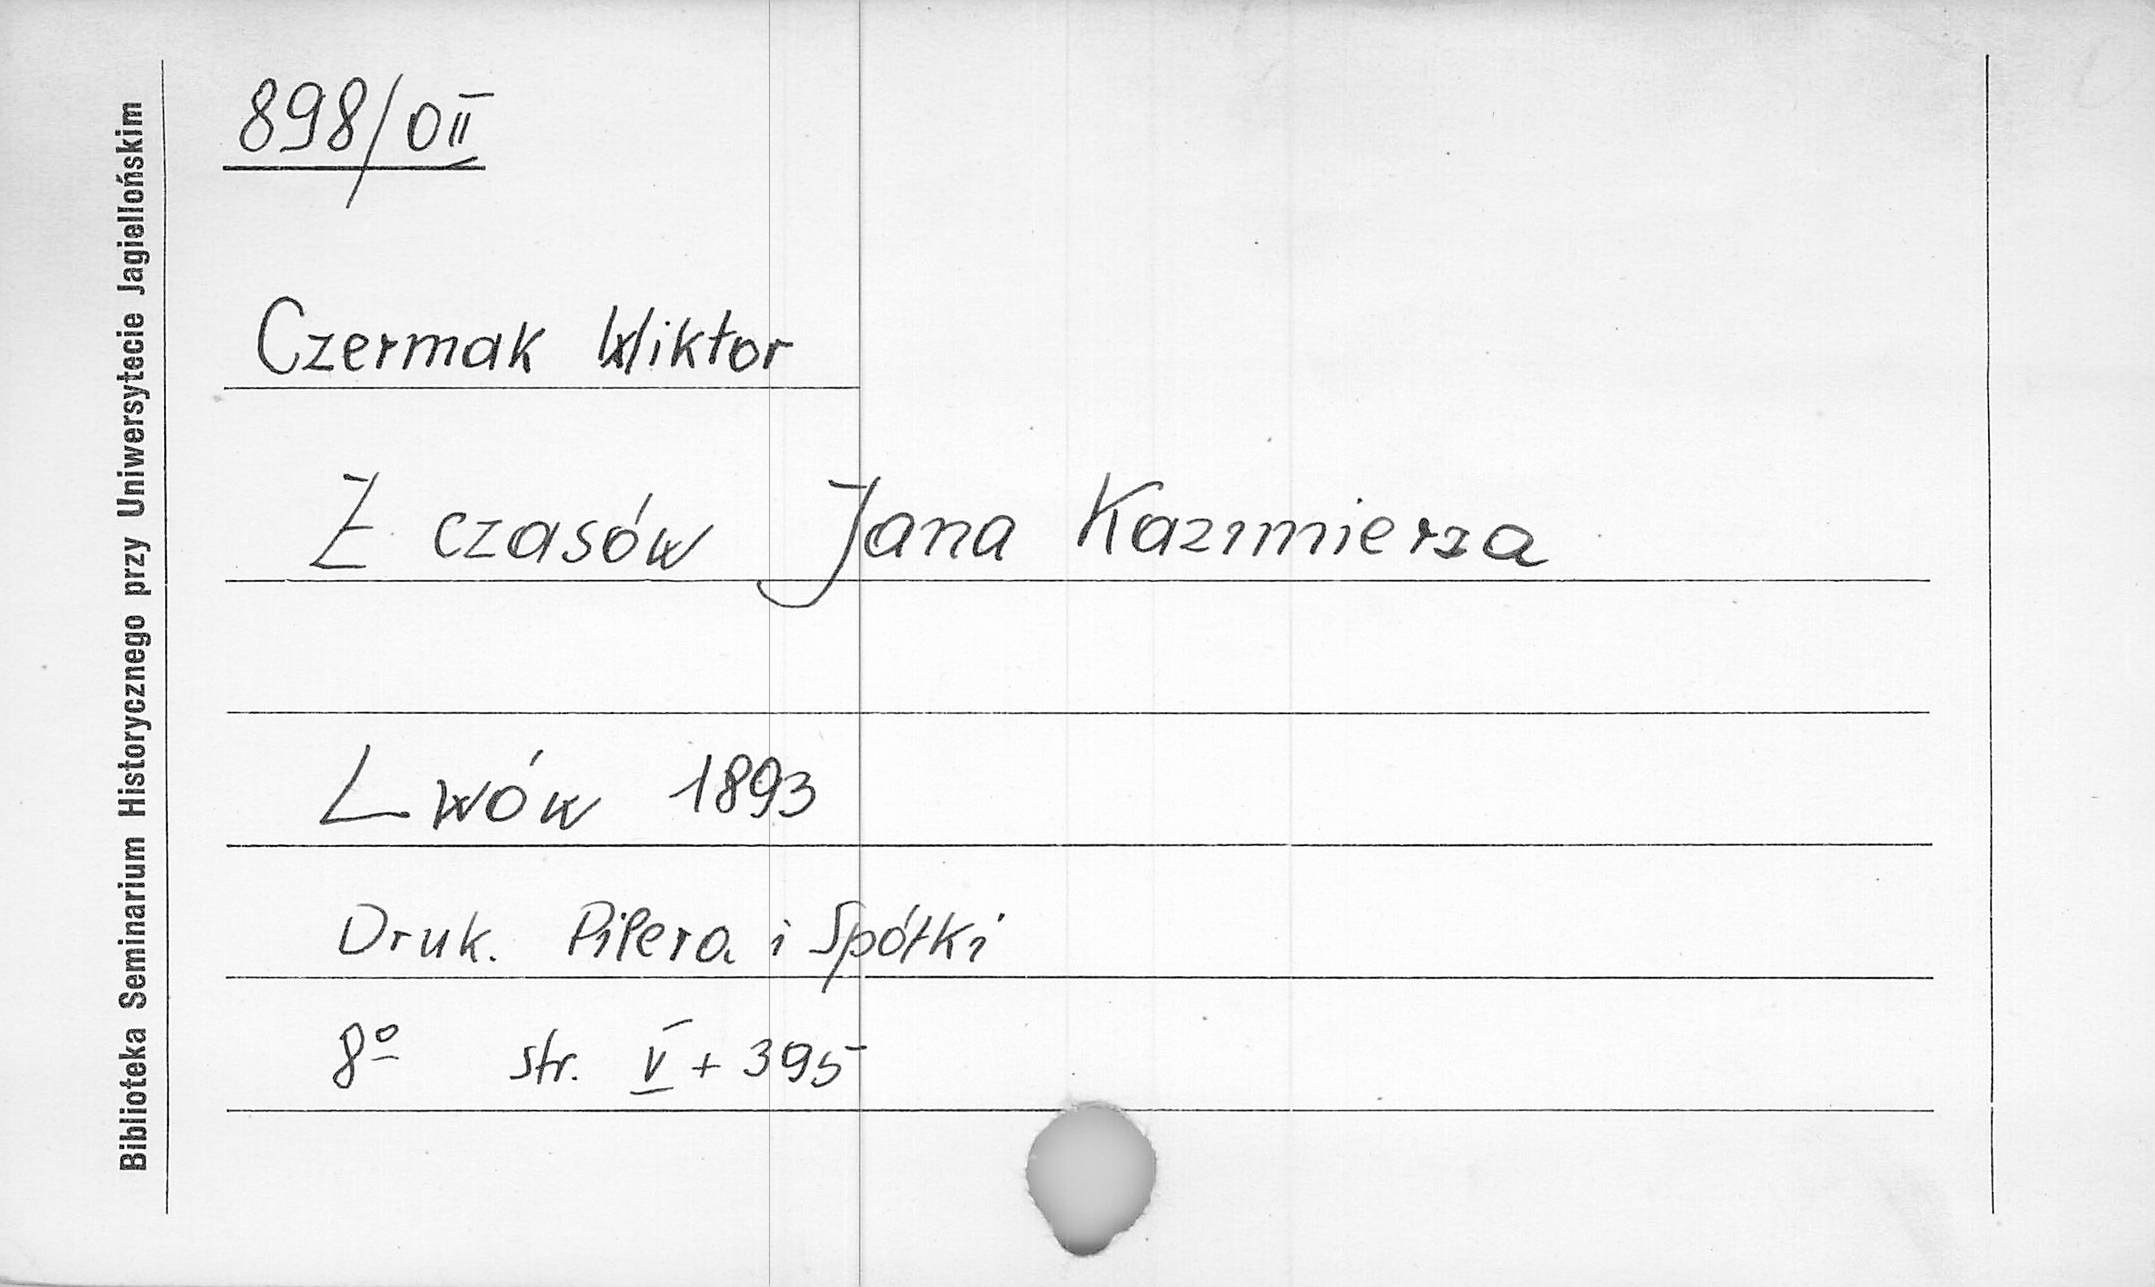 898/0II
Czermak Wiktor
Z czasów Jana Kazimierza
Lwów 1893
Druk. Pilera i Spółki
8º str. V + 395
Biblioteka Seminarium Historycznego przy Uniwersytecie Jagiellońskim